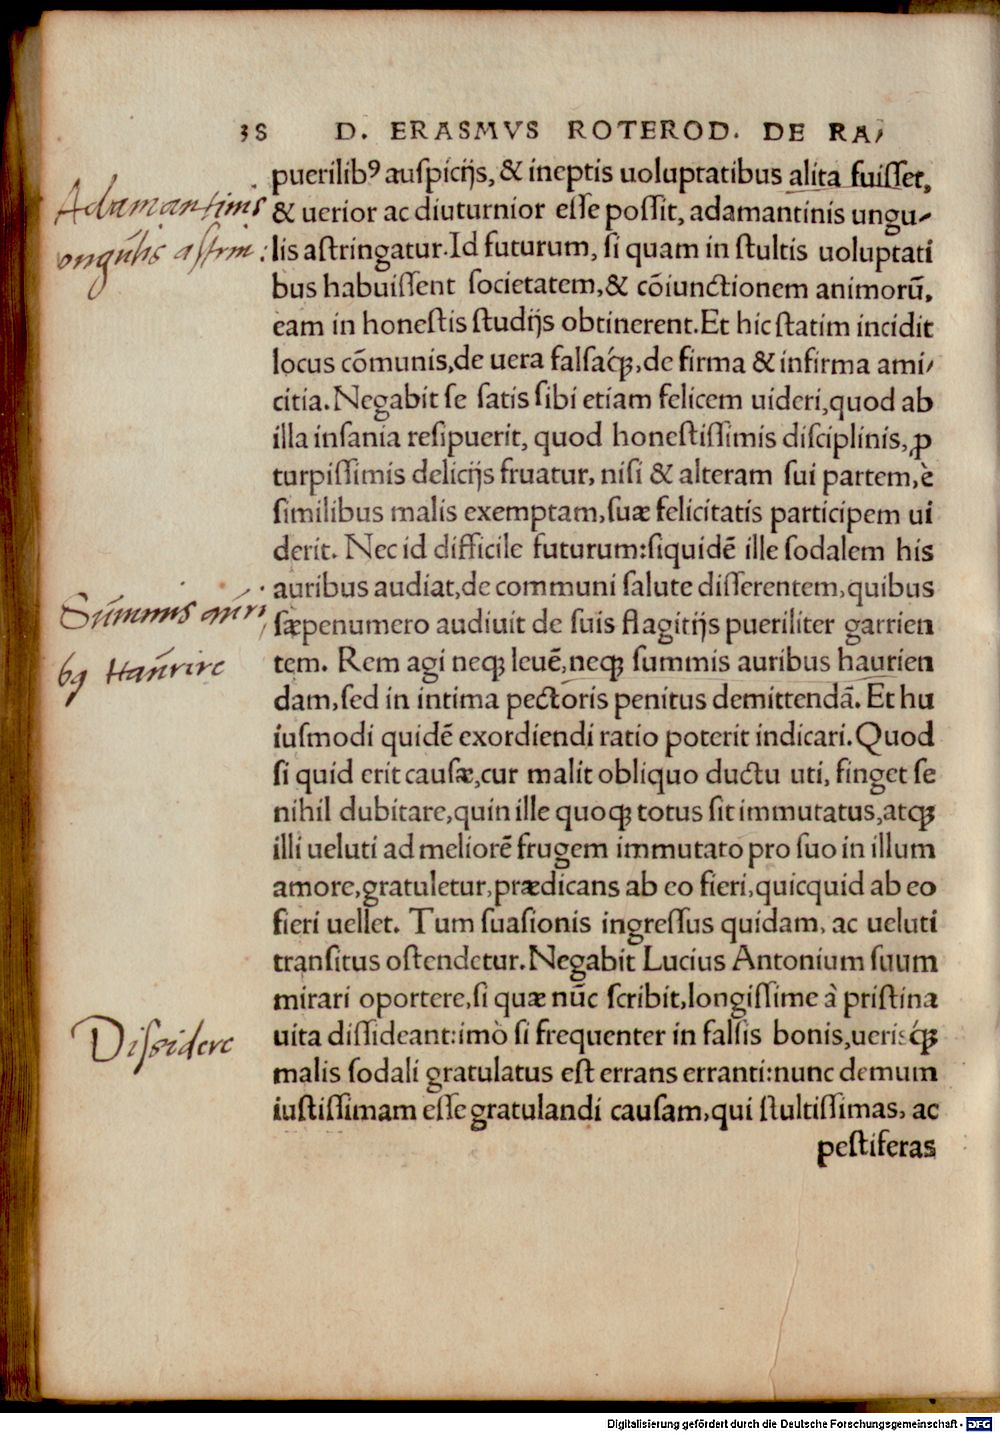 38 D. ERASMVS ROTEROD. DE RA/
puerilibꝰ auſpicijs, & ineptis uoluptatibus alita fuiſſet,
& uerior ac diuturnior eſſe poſſit, adamantinis ungu/
lis aſtringatur. Id futurum, ſi quam in ſtultis uoluptati
bus habuiſſent ſocietatem, & cōiunctionem animorū,
eam in honeſtis ſtudijs obtinerent. Et hic ſtatim incidit
locus cōmunis, de uera falſaꝗ́ꝫ, de firma & infirma ami/
citia. Negabit ſe ſatis ſibi etiam felicem uideri, quod ab
illa inſania reſipuerit, quod honeſtiſſimis diſciplinis, ꝓ
turpiſſimis delicijs fruatur, niſi & alteram ſui partem, è
ſimilibus malis exemptam, ſuæ felicitatis participem ui
derit. Nec id difficile futurum: ſiquidē ille ſodalem his
auribus audiat, de communi ſalute diſſerentem, quibus
ſæpenumero audiuit de ſuis flagitijs pueriliter garrien
tem. Rem agi neqꝫ leuē, neqꝫ ſummis auribus haurien
dam, ſed in intima pectoris penitus demittendā. Et hu
iuſmodi quidē exordiendi ratio poterit indicari. Quod
ſi quid erit cauſæ, cur malit obliquo ductu uti, finget ſe
nihil dubitare, quin ille quoqꝫ totus ſit immutatus, atqꝫ
illi ueluti ad meliorē frugem immutato pro ſuo in illum
amore, gratuletur, prædicans ab eo fieri, quicquid ab eo
fieri uellet. Tum ſuaſionis ingreſſus quidam, ac ueluti
tranſitus oſtendetur. Negabit Lucius Antonium ſuum
mirari oportere, ſi quæ nūc ſcribit, longiſſime à priſtina
uita diſſideant: imò ſi frequenter in falſis bonis, ueriſꝗ́ꝫ
malis ſodali gratulatus eſt errans erranti: nunc demum
iuſtiſſimam eſſe gratulandi cauſam, qui ſtultiſſimas, ac
peſtiferas
Adamantinis
ongulis aſtrin:
Summis auri
bꝰ Haurire
Diſsidere
Digitalisierung gefördert durch die Deutsche Forschungsgemeinschaft - DFG